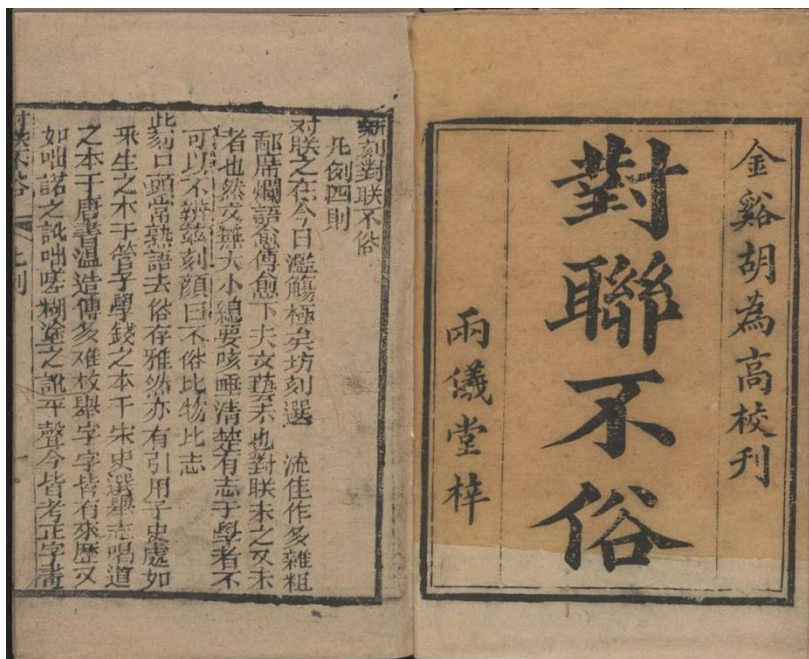 金谿胡為高校刊
對聯不俗
兩儀堂梓
新刻對联不俗
凡例四則
对联之在今日濫觴極矣坊刻選 流佳作多雜粗
鄙席爛語愈傳愈下夫文藝末也對联末之又末
者也然文無大小總要咳唾清楚有志于學者不
可以不辨兹刻顏曰不俗比物比志
此刻口頭常熟語去俗存雅然亦有引用子史處如
乘生之本于管子學錢之本于宋史選舉志唱道
之本于唐書溫造傳多难枚舉字字皆有來歷又
如咄諾之訛咄嗟糊塗之訛平聲今皆考正字畫
对联不俗 凡例 一